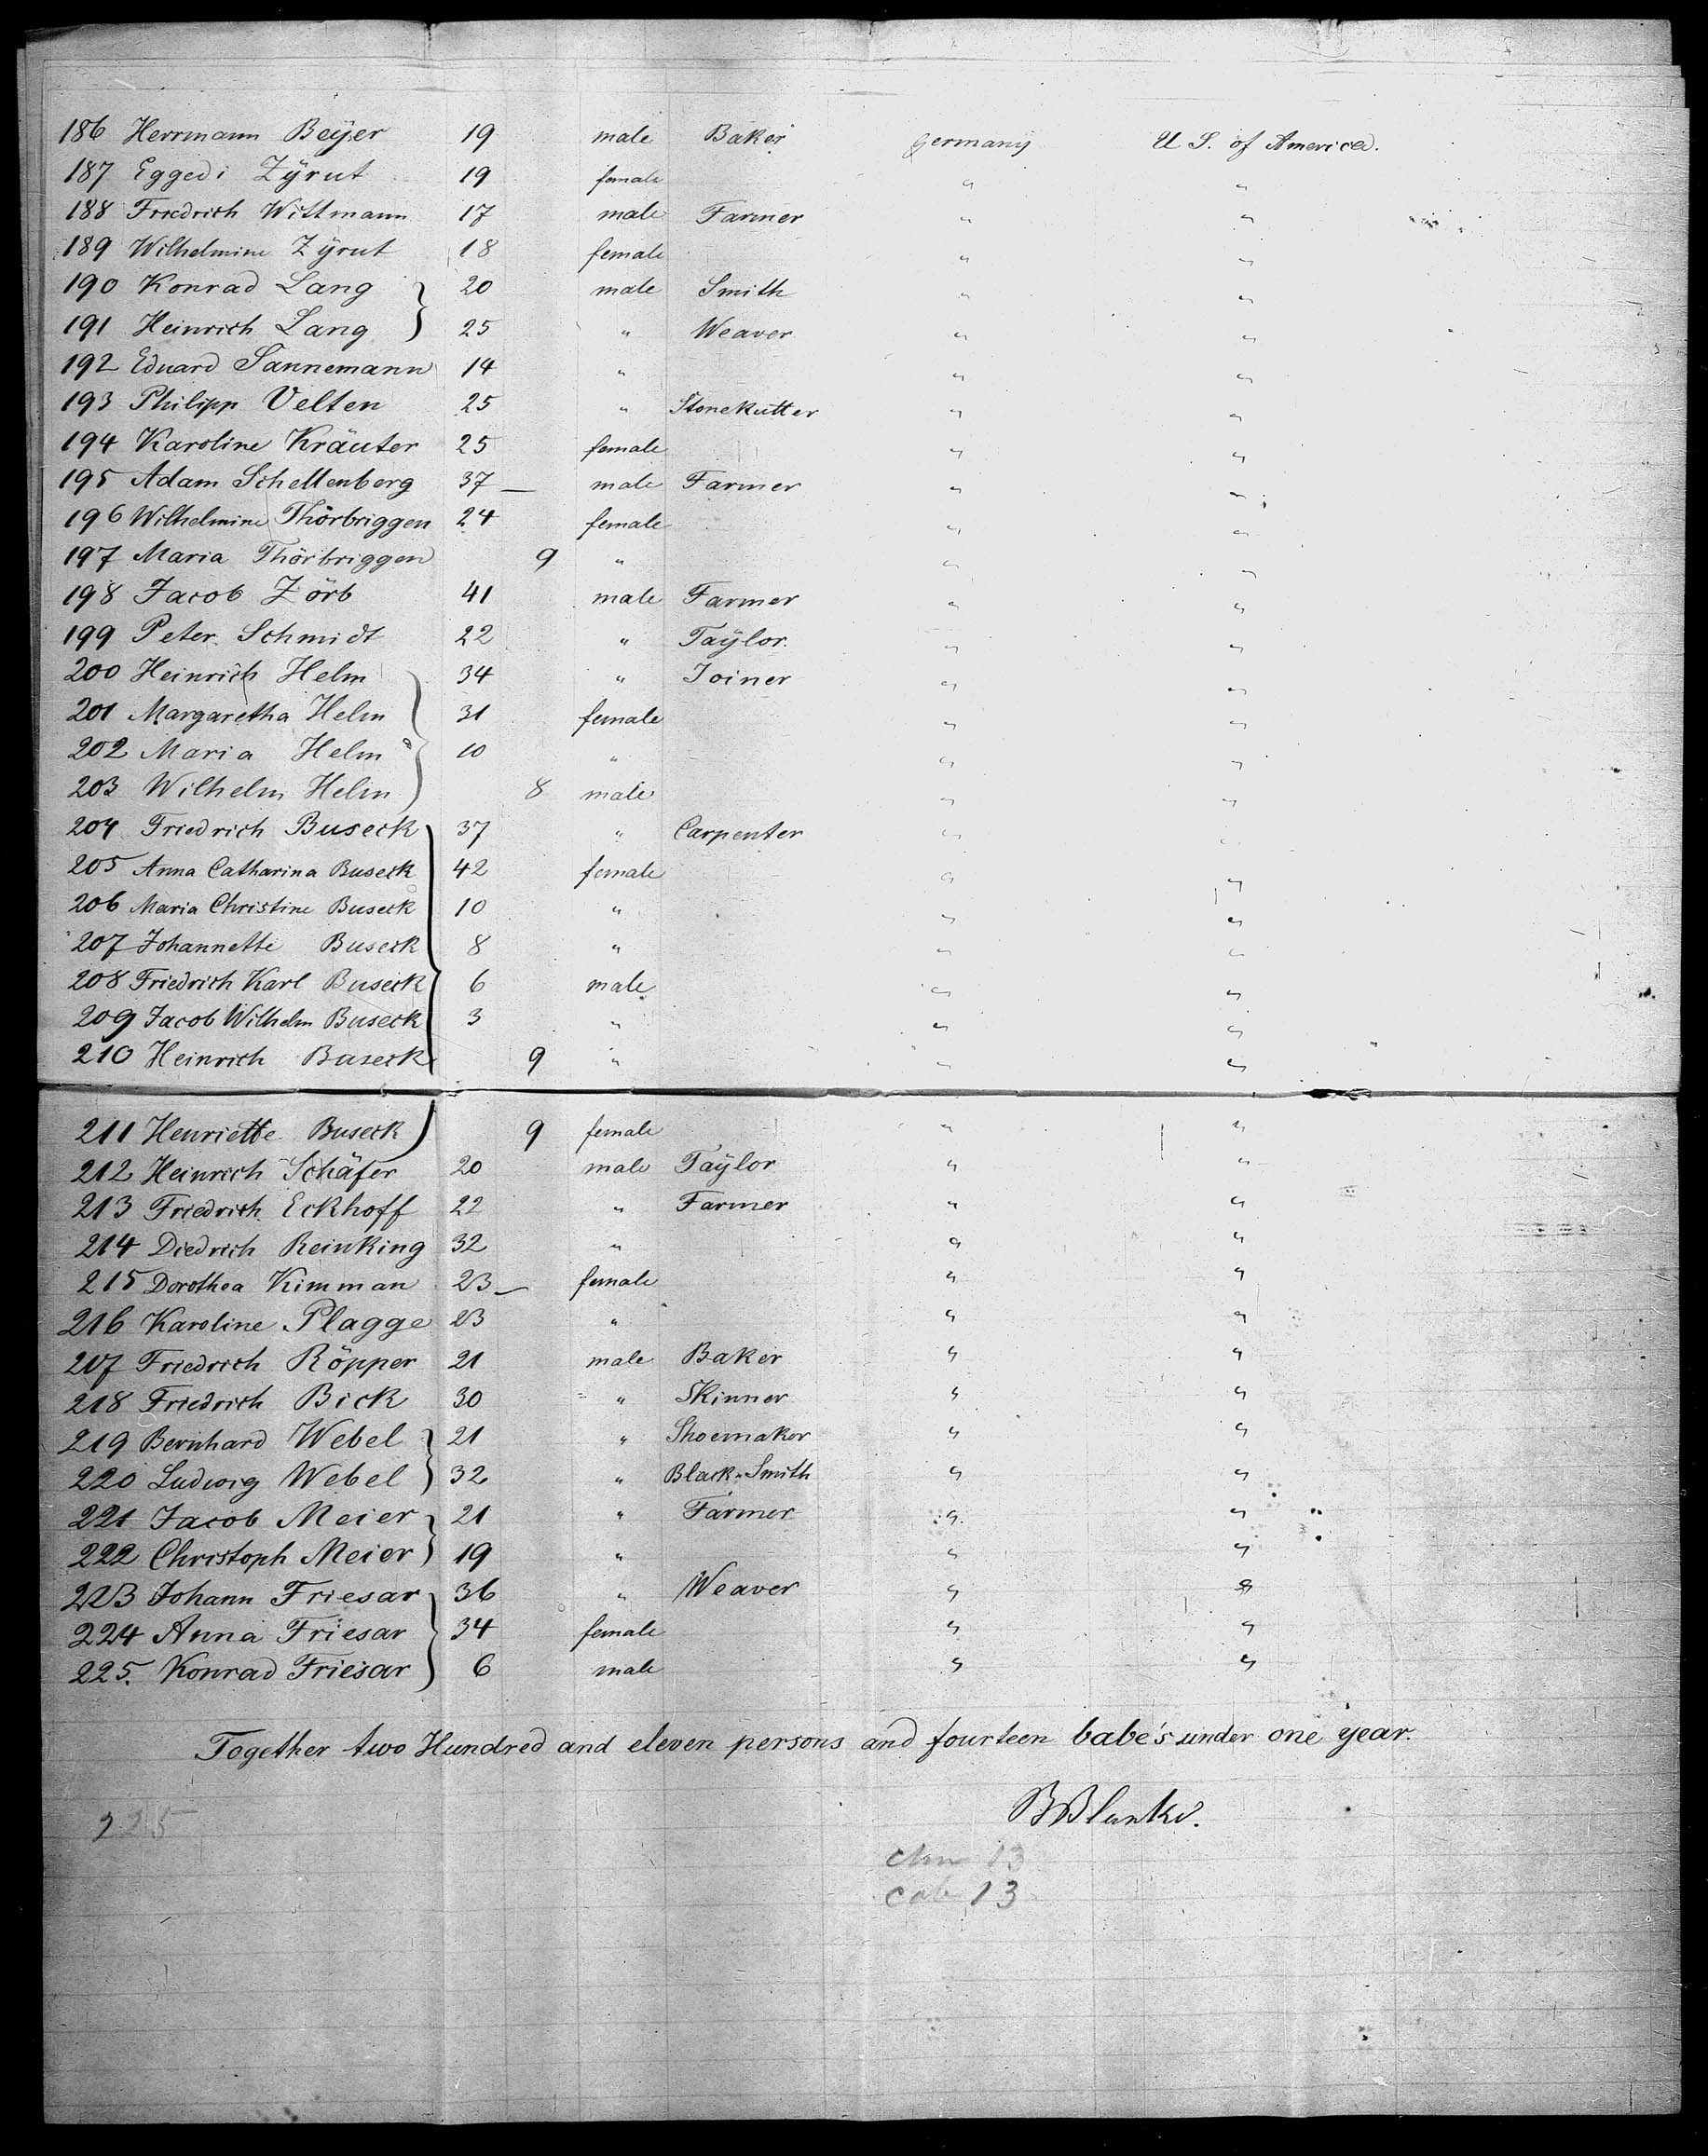 186 Herrmann Beÿer 19 male Baker Germany U S. of America.
187 Eggedi Zÿrut 19 female " "
188 Friedrich Wittmann 17 male Farmer " "
189 Wilhelmine Zÿrut 18 female " "
190 Konrad Lang 20 male Smith " "
191 Heinrich Lang 25 " Weaver " "
192 Eduard Sannemann 14 " " "
193 Philipp Velten 25 " Stonekutter " "
194 Karoline Kräuter 25 female " "
195 Adam Schellenberg 37 — male Farmer " "
196 Wilhelmine Thörbriggen 24 female " "
197 Maria Thörbriggen 9 " " "
198 Jacob Zörb 41 male Farmer " "
199 Peter Schmidt 22 " Taÿlor. " "
200 Heinrich Helm 34 " Joiner " "
201 Margaretha Helm 31 female " "
202 Maria Helm 10 " " "
203 Wilhelm Helm 8 male " "
204 Friedrich Buseck 37 " Carpenter " "
205 Anna Catharina Buseck 42 female " "
206 Maria Christine Buseck 10 " " "
207 Johannette Buseck 8 " " "
208 Friedrich Karl Buseck 6 male " "
209 Jacob Wilhelm Buseck 3 " " "
210 Heinrich Buseck 9 " " "
211 Henriette Buseck 9 female " "
212 Heinrich Schäfer 20 male Taÿlor " "
213 Friedrich Eckhoff 22 " Farmer " "
214 Diedrich Reinking 32 " " "
215 Dorothea Kimman 23 — female " "
216 Karoline Plagge 23 " " "
217 Friedrich Röpper 21 male Baker " "
218 Friedrich Bick 30 " Skinner " "
219 Bernhard Webel 21 " Shoemaker " "
220 Ludwig Webel 32 " Black-Smith " "
221 Jacob Meier 21 " Farmer " "
222 Christoph Meier 19 " " "
223 Johann Friesar 36 " Weaver " "
224 Anna Friesar 34 female " "
225. Konrad Friesar 6 male " "
Together two Hundred and eleven persons and fourteen babe's under one year.
225
13
13